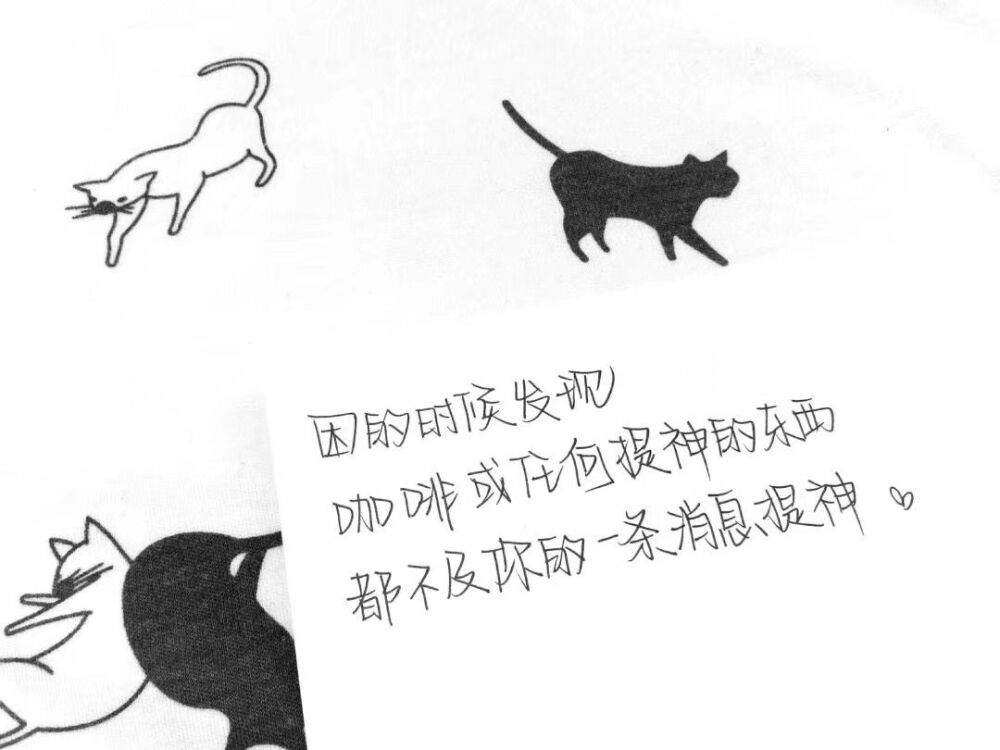 困的时候发现
咖啡或任何提神的东西
都不及你的一条消息提神♡